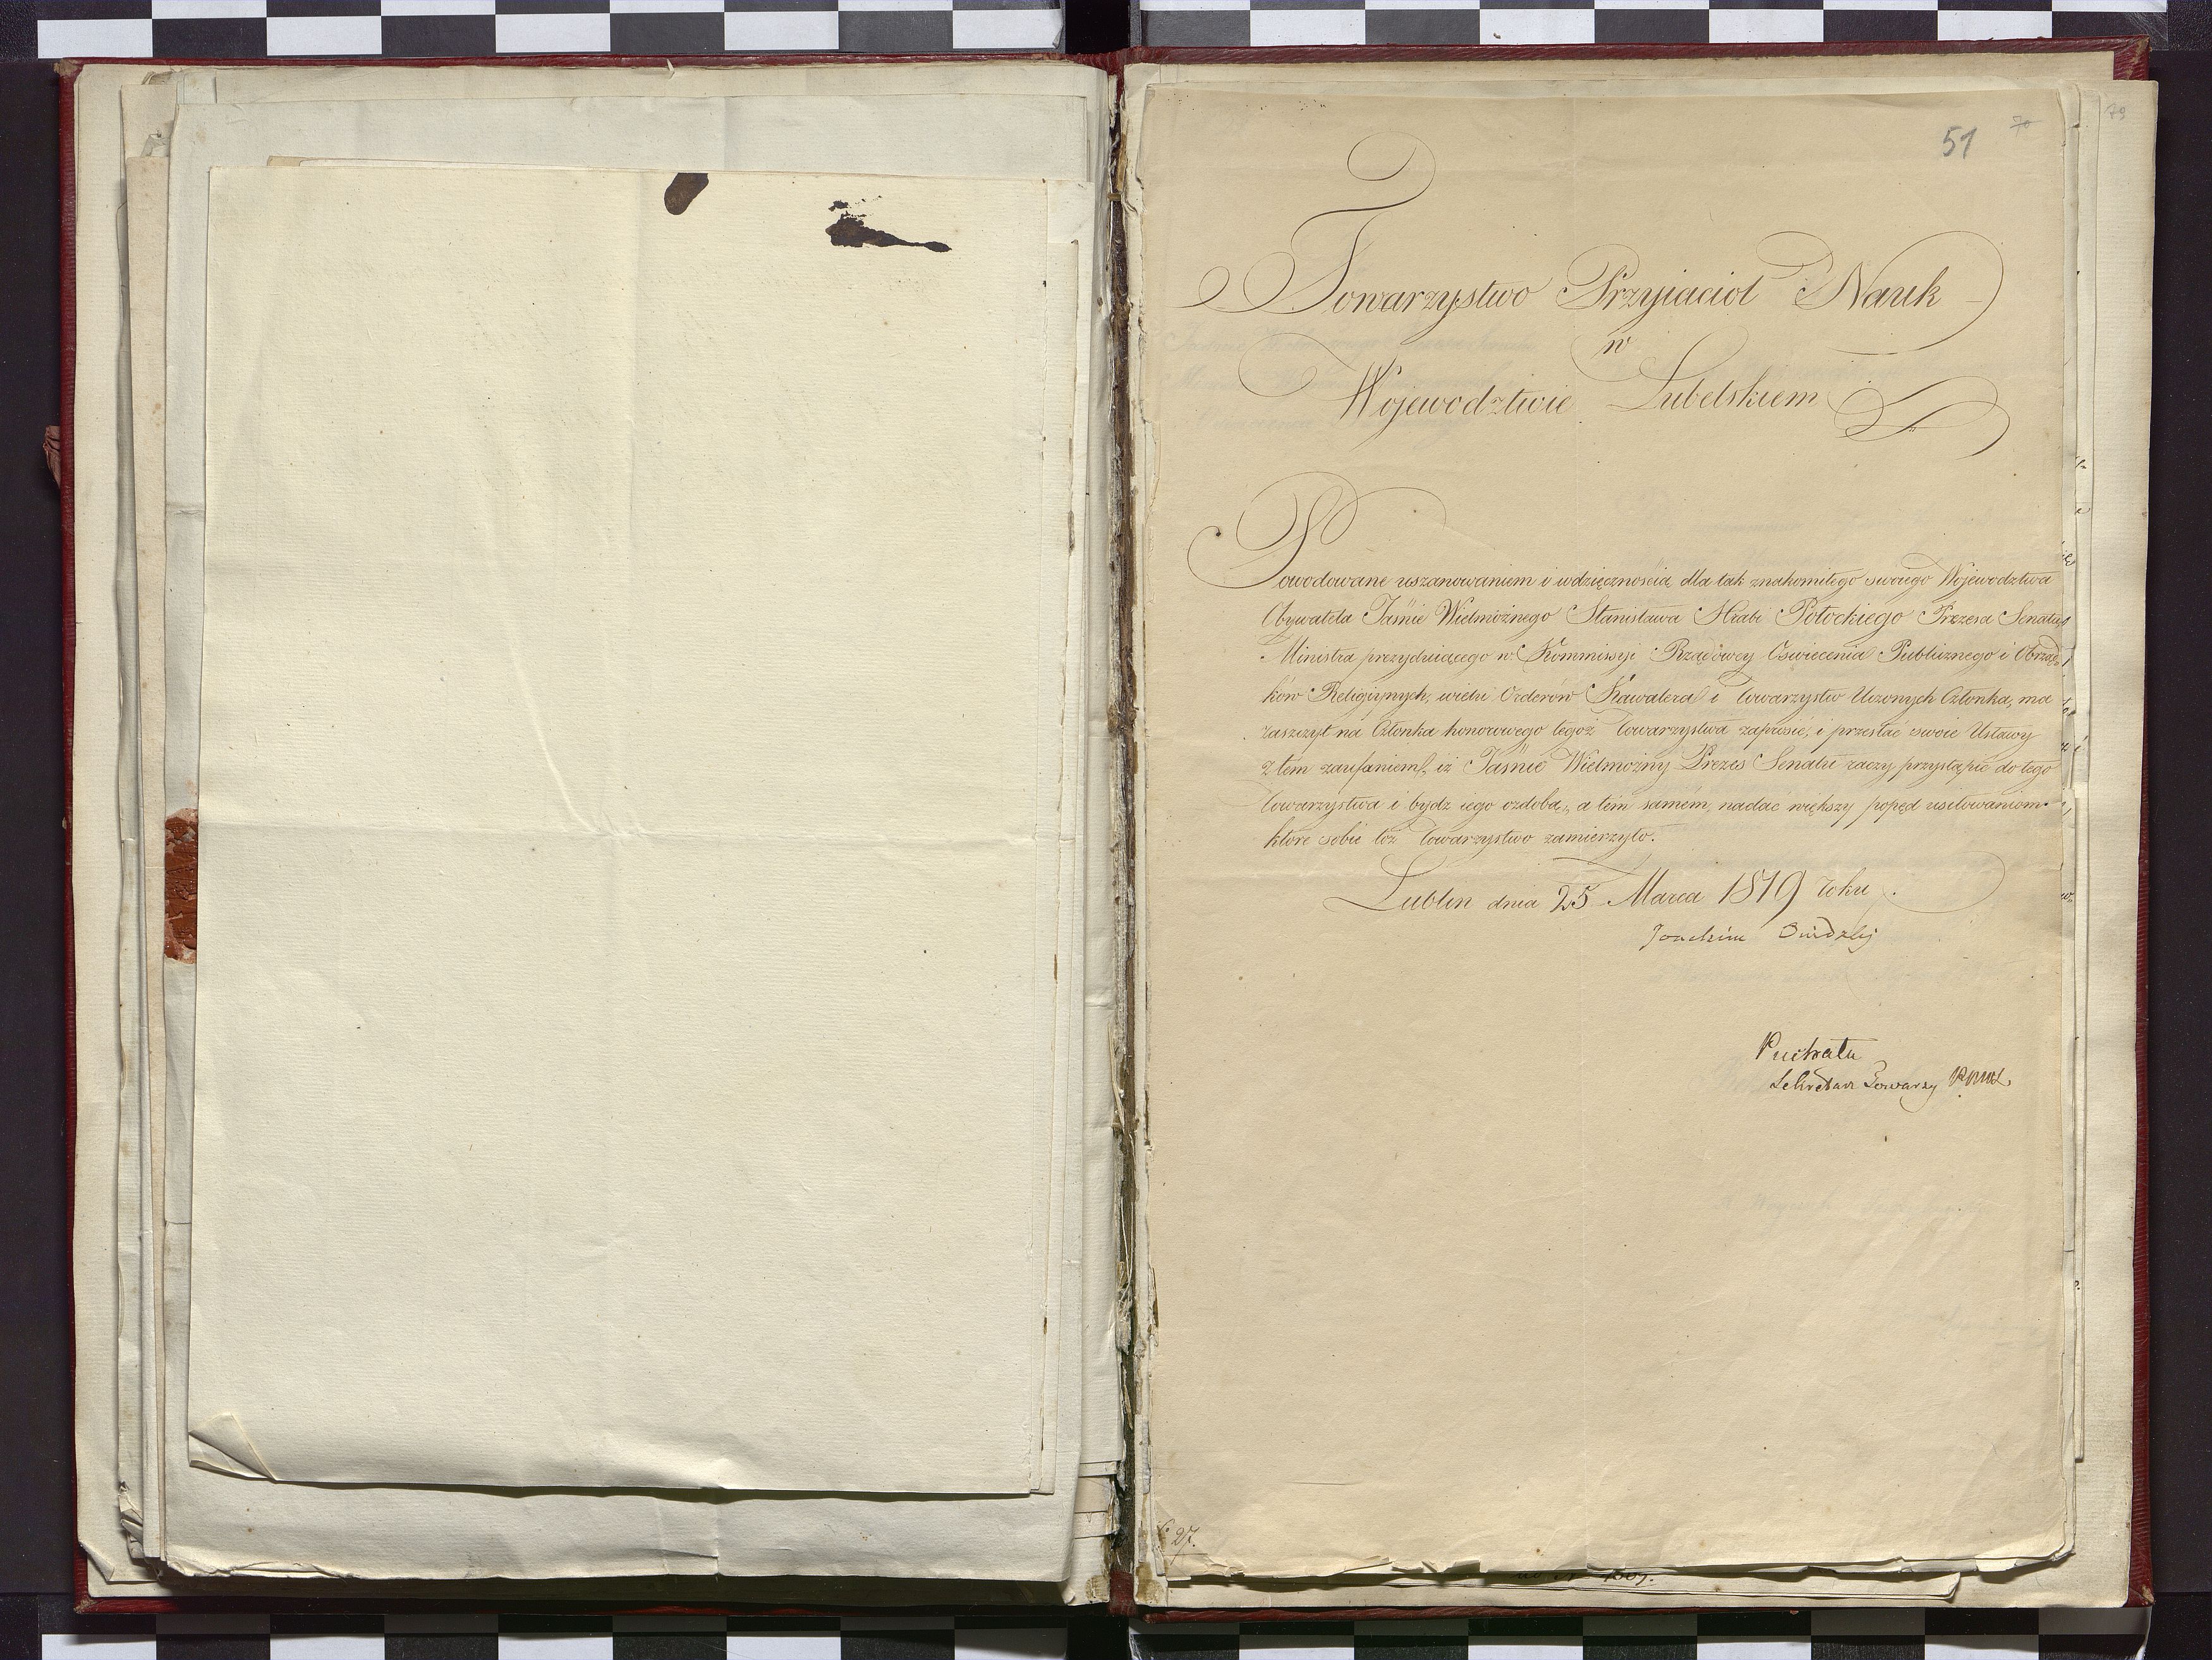 51
70
79
Towarzystwo Przyiacioł Nauk
w
Wojewodztwie Lubelskiem
Powodowane uszanowaniem i wdzięcznością, dla tak znakomitego swoiego Wojewodztwa
Obywatela Jaśnie Wielmożnego Stanisława Hrabi Potockiego Prezesa Senatu,
Ministra prezyduiącego w Kommissyi Rządowey Oświecenia Publicznego i Obrząd-
ków Religiynych, wielu Orderów Kawalera i Towarzystw Uczonych Członka, ma
zaszczyt na Członka honorowego tegoż Towarzystwa zaprosić, i przesłać swoie Ustawy
z tem zaufaniem, iż Jaśnie Wielmożny Prezes Senatu raczy przystąpić do tego
Towarzystwa i bydz iego ozdobą, a tém samém, nadać większy popęd usiłowaniom
które sobie toż Towarzystwo zamierzyło.
Lublin dnia 25 Marca 1819 roku.
Joachim
Puchała
Sekretarz Towarzy
27.